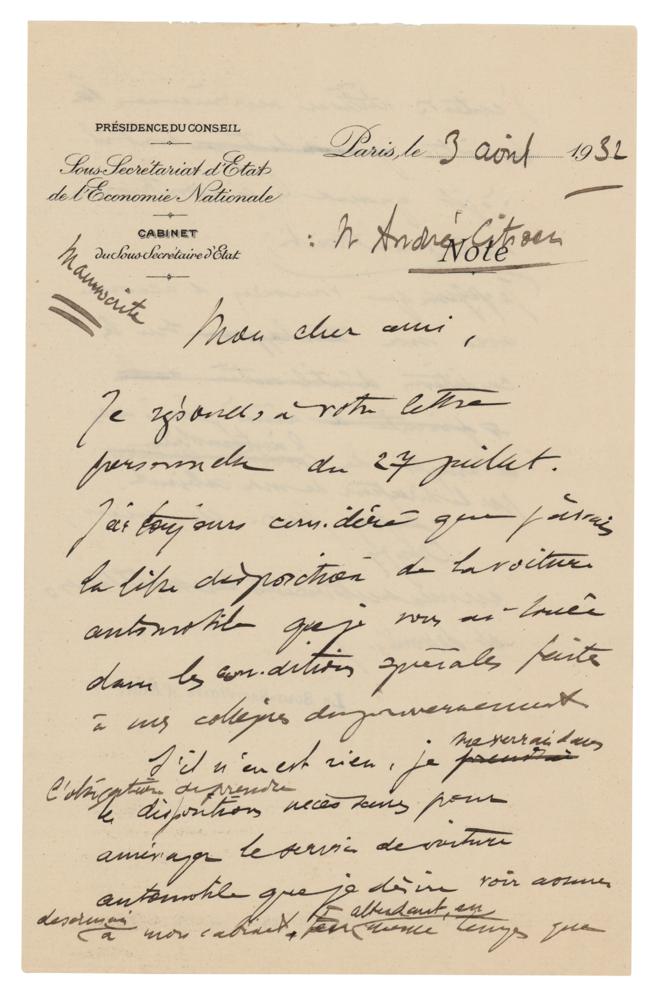 PRÉSIDENCE DU CONSEIL
Sous-Secrétariat d'Etat
de l'Economie Nationale
CABINET
du Sous-Secrétaire d'Etat
Paris, le 3 août 1932
: M André Citroen
Note
Manuscrite
Mon cher ami,
Je réponds à votre lettre
personnelle du 27 juillet.
J'ai toujours considéré que j'avais
la libre disposition de la voiture
automobile que je vous ai louée
dans les conditions spéciales faites
à mes collègues du gouvernement
S'il n'en est rien, je me verrai dans
l'obligation de prendre
les dispositions nécessaires pour
aménager le service de voiture
automobile que je désire voir assurer
désormais
à mon cabinet, attendant, en même temps que